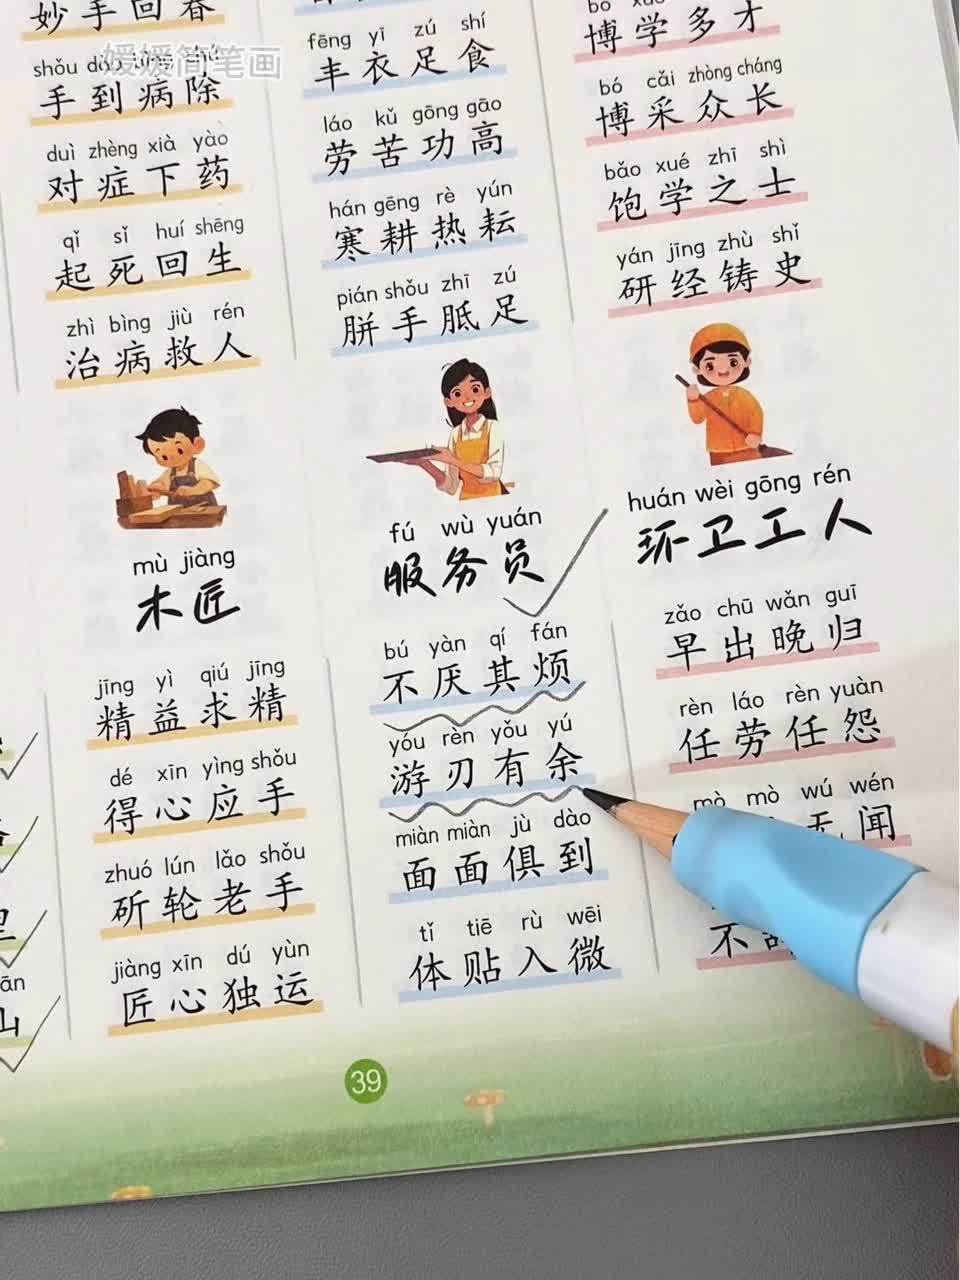 媛媛简笔画
妙手回春
shǒu
手到病除
duì zhèng xià yào
对症下药
qǐ sǐ huí shēng
起死回生
zhì bìng jiù rén
治病救人
mù jiàng
木匠
jīng yì qiú jīng
精益求精
dé xīn yìng shǒu
得心应手
zhuó lún lǎo shǒu
斫轮老手
jiàng xīn dú yùn
匠心独运
fēng yī zú shí
丰衣足食
láo kǔ gōng gāo
劳苦功高
hán gēng rè yún
寒耕热耘
pián shǒu zhī zú
胼手胝足
fú wù yuán
服务员
bú yàn qí fán
不厌其烦
yóu rèn yǒu yú
游刃有余
miàn miàn jù dào
面面俱到
tǐ tiē rù wēi
体贴入微
博学多才
bó cǎi zhòng cháng
博采众长
bǎo xué zhī shì
饱学之士
yán jīng zhù shǐ
研经铸史
huán wèi gōng rén
环卫工人
zǎo chū wǎn guī
早出晚归
rèn láo rèn yuàn
任劳任怨
mò mò wú wén
闻
不
ān
山
39